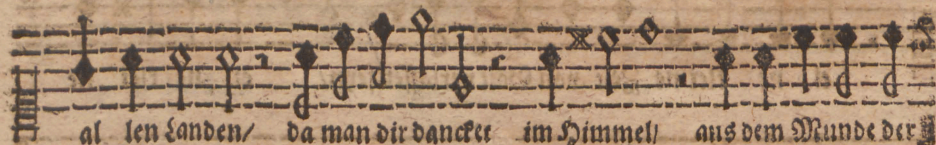 al len Landen/ da man dir dancket im Himmel/ aus dem Munde der